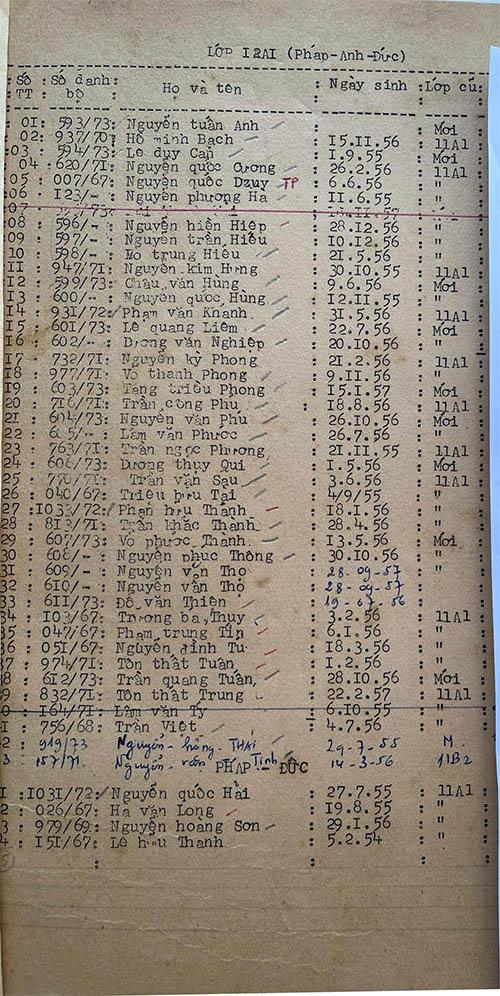 LỚP I2AI (Pháp-Anh-Đức)
:Số :Số danh: Họ và tên : Ngày sinh :Lớp cũ:
TT : bộ
OI: 593/73: Nguyễn tuấn Anh Mới
02: 937/70: Hồ minh Bạch : I5.II.56 : 11A1
:03 : 594/73: Lê duy Cẩn : I.9.55 : Mới
04 :620/71: Nguyễn quốc Cương : 26.2.56 : 11A1
:05 : 007/67: Nguyễn quốc Dzuy TP : 6.6.56 : "
:06 : I23/-: Nguyễn phương Hà : II.6.55 : "
:07
:08 : 596/-: Nguyễn hiền Hiệp : 28.I2.56 : "
:09 : 597/-: Nguyễn trần Hiếu : I0.I2.56 : "
10 : 598/-: trung Hiếu : 2I.5.56 : "
II : 947/7I: Nguyễn kim Hưng : 30.I0.55 : 11A1
I2 : 599/73: Châu văn Hùng : 9.6.56 : Mới
I3 : 600/-: Nguyễn quốc Hùng : I2.II.55 : "
I4 : 93I/72: Phạm văn Khanh : 3I.5.56 : 11A1
I5 : 60I/73: Lê quang Liêm : 22.7.56 : Mới
I6 : 602/-: Dương văn Nghiệp : 20.I0.56 : "
I7 : 732/7I: Nguyễn kỳ Phong : 2I.2.56 : 11A1
I8 : 977/7I: Võ thanh Phong : 9.II.56 : "
I9 : 603/73: Tăng triều Phong : I5.I.57 : Mới
20 : 7I6/7I: Trần công Phú : I8.8.56 : 11A1
2I : 604/73: Nguyễn văn Phú : 26.I0.56 : Mới
22 : 605/-: Lâm văn Phước : 26.7.56 : "
23 : 763/7I: Trần ngọc Phương : 2I.II.55 : 11A1
24 : 606/73: Dương thụy Qui : I.5.56 : Mới
25 : 770/7I: Trần văn Sáu : 3.6.56 : 11A1
26 : 040/67: Triệu hữu Tài : 4/9/55 : "
27 :I033/72: Phan hữu Thành : I8.I.56 : "
28 : 8I3/7I: Trần khắc Thanh : 28.4.56 : "
29 : 607/73: Võ phước Thanh : I3.5.56 : Mới
30 : 608/-: Nguyễn phục Thông : 30.I0.56 : "
3I : 609/-: Nguyễn văn Thọ : 28-09-57
32 : 6I0/-: Nguyễn văn Thọ : 28-09-57
33 : 6II/73: Đỗ văn Thiện : 19-67-56
34 : I03/67: Trương bá Thụy : 3.2.56 : 11A1
35 : 047/67: Phạm trung Tín : 6.I.56 : "
36 : 05I/67: Nguyễn đình Tú : I8.3.56 : "
37 : 974/7I: Tôn thất Tuấn : I.2.56 : "
8 : 6I2/73: Trần quang Tuấn : 28.I0.56 : Mới
9 : 832/7I: Tôn thất Trung : 22.2.57 : 11A1
0 : I64/7I: Lâm văn Tỷ : 6.I0.55 : "
I : 756/68: Trần Việt : 4.7.56 : "
2 : 919/73 Nguyễn hồng THÁI : 29-7-55 M.
3 : 157/71. Nguyễn văn Tịnh : 14-3-56 11B2
PHÁP - ĐỨC
I :I03I/72: Nguyễn quốc Hải : 27.7.55 : 11A1
2 : 026/67: Hà văn Long : I9.8.55 : "
3 : 979/69: Nguyễn hoàng Sơn : 29.I.56 : "
4 : I5I/67: Lê hữu Thanh : 5.2.54 : "